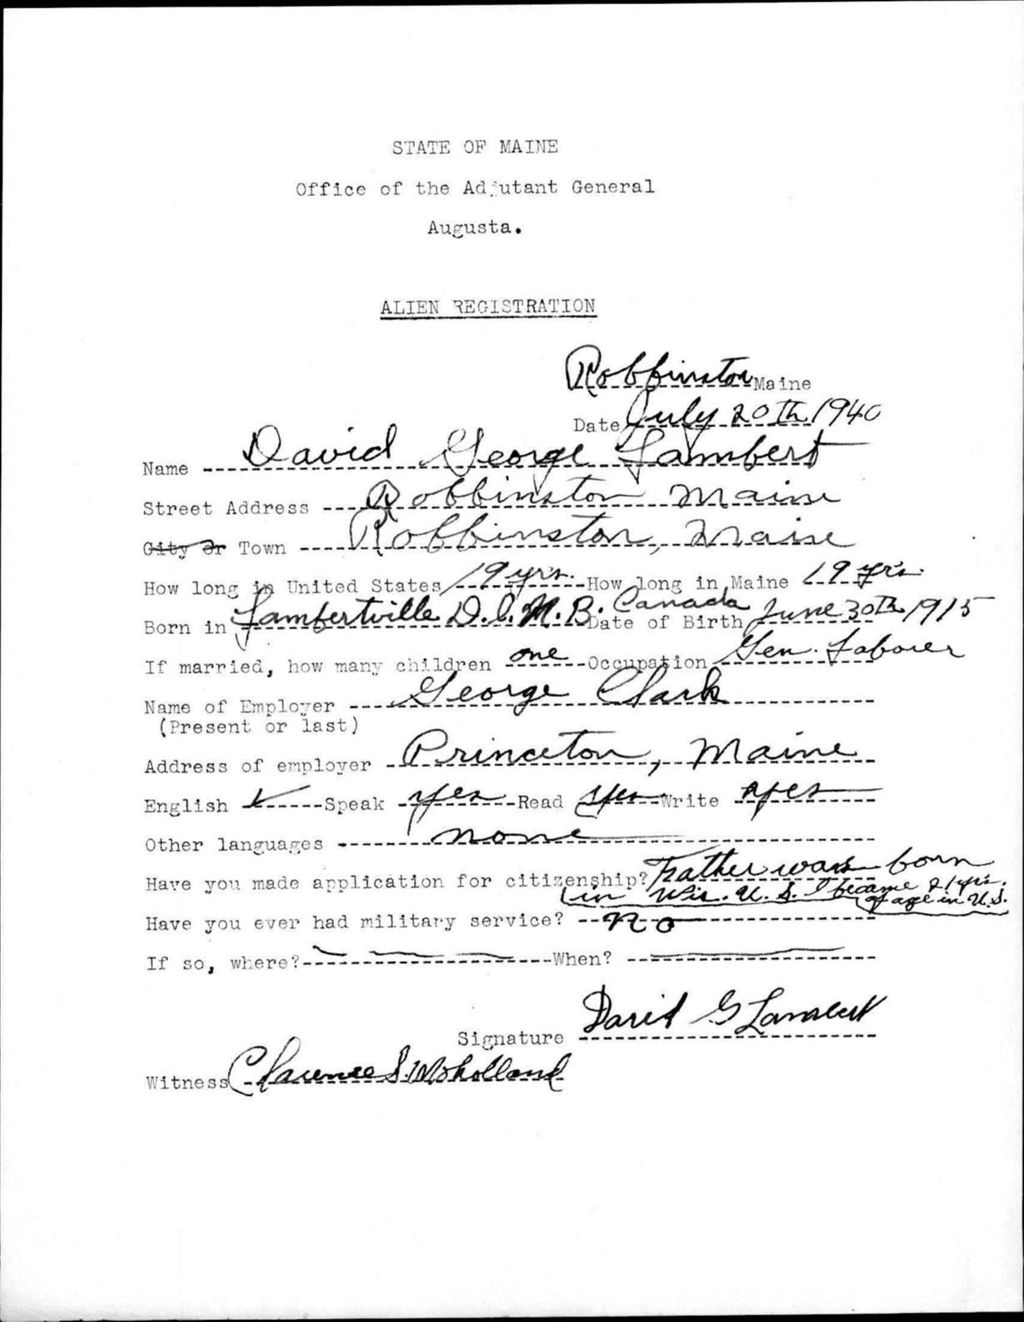 STATE OF MAINE
Office of the Adjutant General
Augusta.
ALIEN REGISTRATION
Robbinston Maine
Date July 20th 1940
Name David George Lambert
Street Address Robbinston Maine
City or Town Robbinston, Maine
How long in United States 19 yrs. How long in Maine 19 yrs.
Born in Lambertville D.I. N.B. Canada Date of Birth June 30th 1915
If married, how many children one Occupation Gen. Laborer
Name of Employer George Clark
(Present or last)
Address of employer Princeton, Maine
English ✓ Speak yes Read yes Write yes
Other languages none
Have you made application for citizenship? Father was born
in Wis. U.S. I became 21 yrs. of age in U.S.
Have you ever had military service? No
If so, where? When?
Signature David G Lambert
Witness Clarence S. Moholland